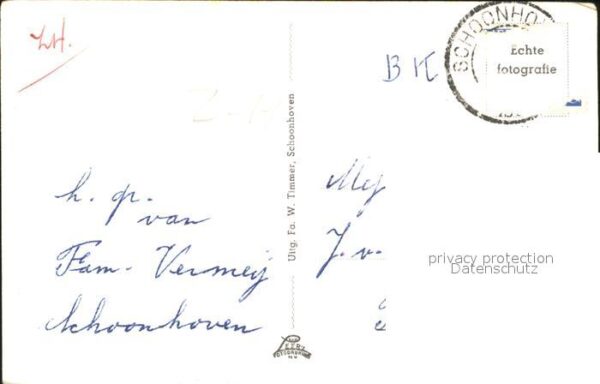 ZH.
BK
SCHOONHO
Echte
fotografie
h. p.
van
Fam. Vermeij
Schoonhoven
Uitg. Fa. W. Timmer, Schoonhoven
J. v.
privacy protection
Datenschutz